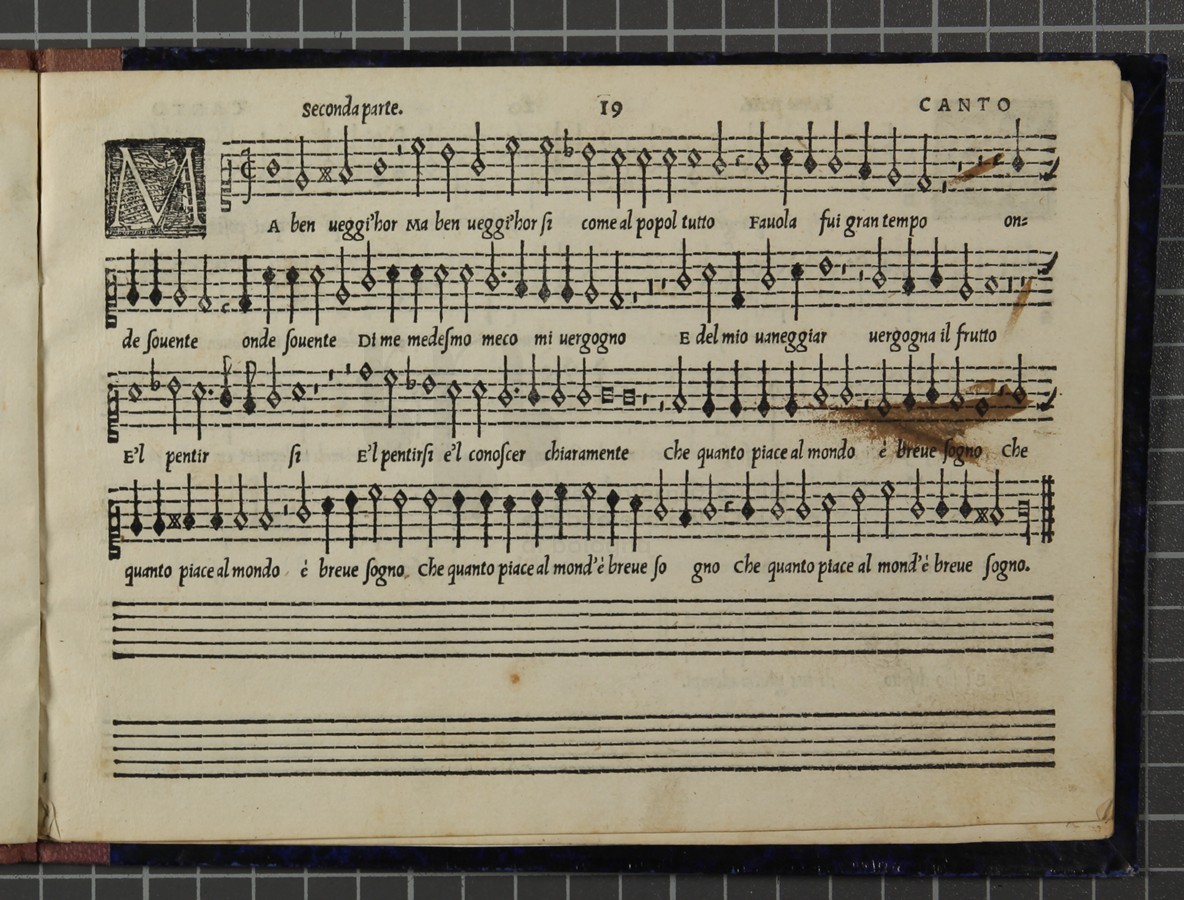 Seconda parte. 19 CANTO
MA ben ueggi'hor Ma ben ueggi'hor ſi come al popol tutto Fauola fui gran tempo on=
de ſouente onde ſouente Di me medeſmo meco mi uergogno E del mio uaneggiar uergogna il frutto
E'l pentir ſi E'l pentirſi e'l conoſcer chiaramente Che quanto piace al mondo è breue ſogno Che
quanto piace al mondo è breue ſogno Che quanto piace al mond'è breue ſo gno Che quanto piace al mond'è breue ſogno.